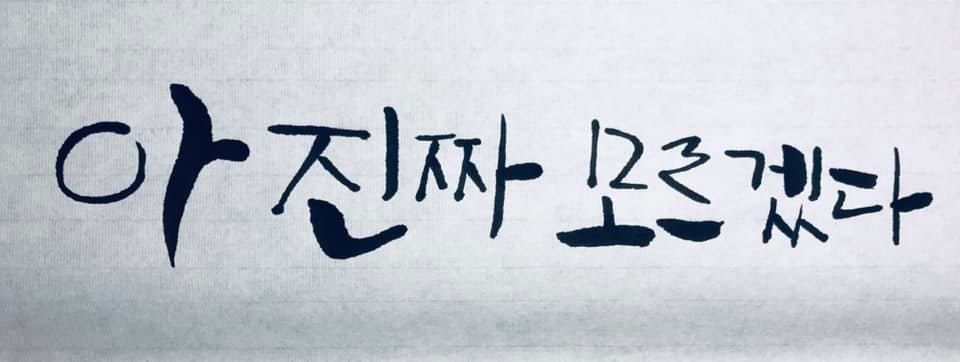 아 진짜 모르겠다